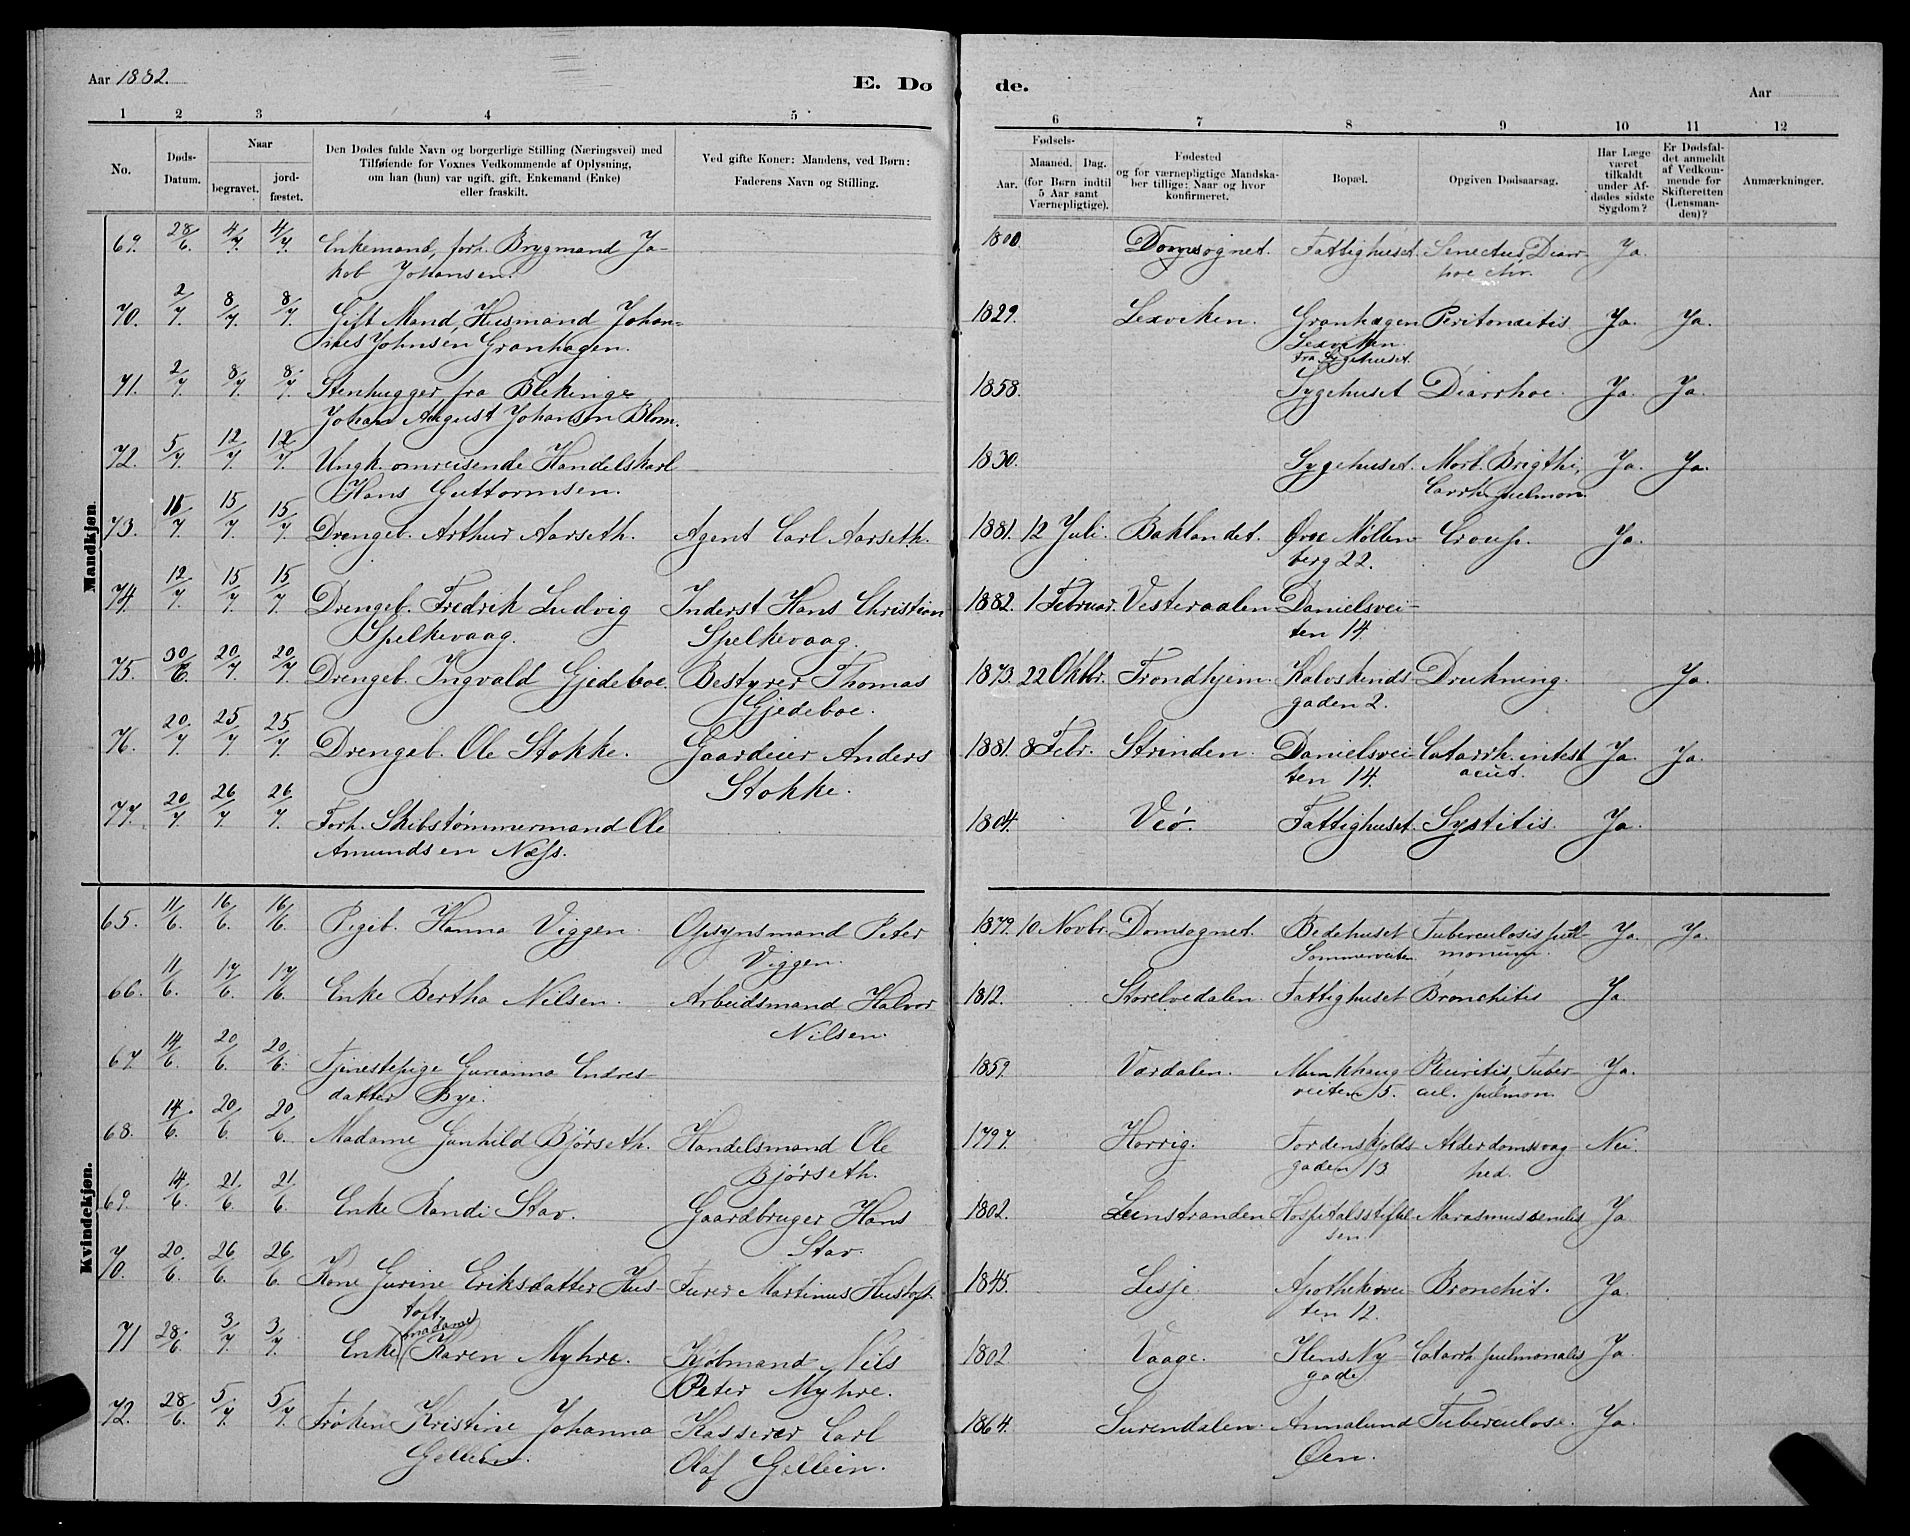 Aar 1882.
E. Dø
de.
Aar
1 2 3 4 5 6 7 8 9 10 11 12
No.
Døds-Datum.
Naar
begravet.
jord-fæstet.
Den Dødes fulde Navn og borgerlige Stilling (Næringsvei) med
Tilføiende for Voxnes Vedkommende af Oplysning,
om han (hun) var ugift, gift, Enkemand (Enke)
eller fraskilt.
Ved gifte Koner: Mandens, ved Børn:
Faderens Navn og Stilling.
Fødsels-
Aar.
Maaned. Dag.
(for Børn indtil
5 Aar samt
Værnepligtige).
Fødested
og for værnepligtige Mandska-
ber tillige: Naar og hvor
konfirmeret.
Bopæl.
Opgiven Dødsaarsag.
Har Læge
været
tilkaldt
under Af-
dødes sidste
Sygdom?
Er Dødsfal-
det anmeldt
af Vedkom-
mende for
Skifteretten
(Lensman-
den)?
Anmærkninger.
Mandkjøn.
69. 28/6. 4/7. 4/7. Enkemand, forh. Brygmand Ja- 1800. Domsognet. Fattighuset. Senectus, Diarr- Ja.
kob Johansen. hoe chr.
70. 2/7. 8/7. 8/7. Gift Mand, Husmand Johan- 1829. Lexviken. Granhagen Peritonætis Ja. Ja.
nes Johnsen Granhagen. Lexviken
fra Sygehuset.
71. 2/7. 8/7. 8/7. Stenhugger fra Blekinge 1858. Sygehuset Diarrhoe. Ja. Ja.
Johan August Johansen Blom.
72. 5/7. 12/7. 12/7. Ungk. omreisende Handelskarl 1830. Sygehuset. Morb. Brigthi, Ja. Ja.
Hans Guttormsen. Carrh. pulmon.
73. 11/7. 15/7. 15/7. Drengeb. Arthur Aarseth. Agent Carl Aarseth. 1881. 12 Juli. Baklandet. Øvre Møllen- Croup. Ja.
berg 22.
74. 12/7. 15/7. 15/7. Drengeb. Fredrik Ludvig Inderst Hans Christian 1882. 1 Februar. Vesteraalen. Danielsvei-
Spelkevaag. Spelkevaag. ten 14.
75. 30/6. 20/7. 20/7. Drengeb. Ingvald Gjedeboe. Bestyrer Thomas 1873. 22 Oktbr. Trondhjem. Kalvskinds- Drukning. Ja.
Gjedeboe. gaden 2.
76. 20/7. 25/7. 25/7. Drengeb. Ole Stokke. Gaardeier Anders 1881. 8 Febr. Strinden. Danielsvei- Catarrh. intest Ja. Ja.
Stokke. ten 14. acut.
77. 20/7. 26/7. 26/7. Forh. Skibstømmermand Ole 1804. Veø. Fattighuset. Systitis. Ja.
Amundsen Næss.
Kvindekjøn.
65. 11/6. 16/6. 16/6. Pigeb. Hanna Viggen. Opsynsmand Peter 1879. 10 Novbr. Domsognet. Bedehuset Tuberculosis pul- Ja. Ja.
Viggen. Sommerveiten monum.
66. 11/6. 17/6. 17/6. Enke Bertha Nilsen. Arbeidsmand Halvor 1812. Storelvedalen. Fattighuset Bronchitis Ja
Nilsen.
67. 14/6. 20/6. 20/6. Tjenestepige Gurianna Endres- 1859. Værdalen. Munkhaug- Pleuritis, Tuber- Ja.
datter Bye. veiten 15. cul. pulmon.
68. 14/6. 20/6. 20/6. Madame Gunhild Bjørseth. Handelsmand Ole 1797. Horrig. Tordenskjolds- Alderdomssvag- Nei.
Bjørseth. gaden 13 hed.
69. 14/6. 21/6. 21/6. Enke Randi Stav. Gaardbruger Hans 1802. Leinstranden Hospitalsstiftel- Marasmus senilis Ja
Stav. sen.
70. 20/6. 26/6. 26/6. Kone Gurine Eriksdatter Hus- Furer Martinus Hustoft. 1845. Lesje. Apothekervei- Bronchit. Ja.
toft. ten 12.
71 28/6. 3/7. 3/7. Enke (madame) Karen Myhre. Kjøbmand Nils 1802 Vaage. Ilens Ny- Catarrh. pulmonalis Ja
Peter Myhre. gade
72. 28/6. 5/7. 5/7. Frøken Kristine Johanna Kasserer Carl 1864. Surendalen. Annalund Tuberculose. Ja.
Gellein. Olaf Gellein. Øen.